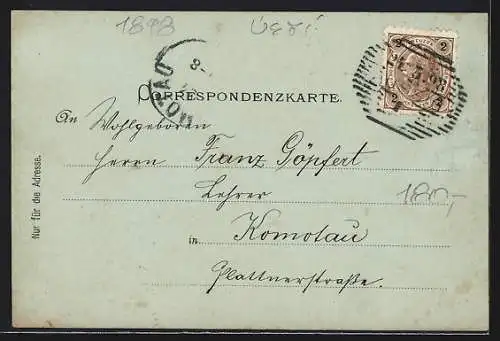 1898
CORRESPONDENZKARTE.
An Wohlgeboren
Herrn Franz Göpfert
Lehrer
in Komotau
Plattnerstraße.
Nur für die Adresse.
180,-
2 2